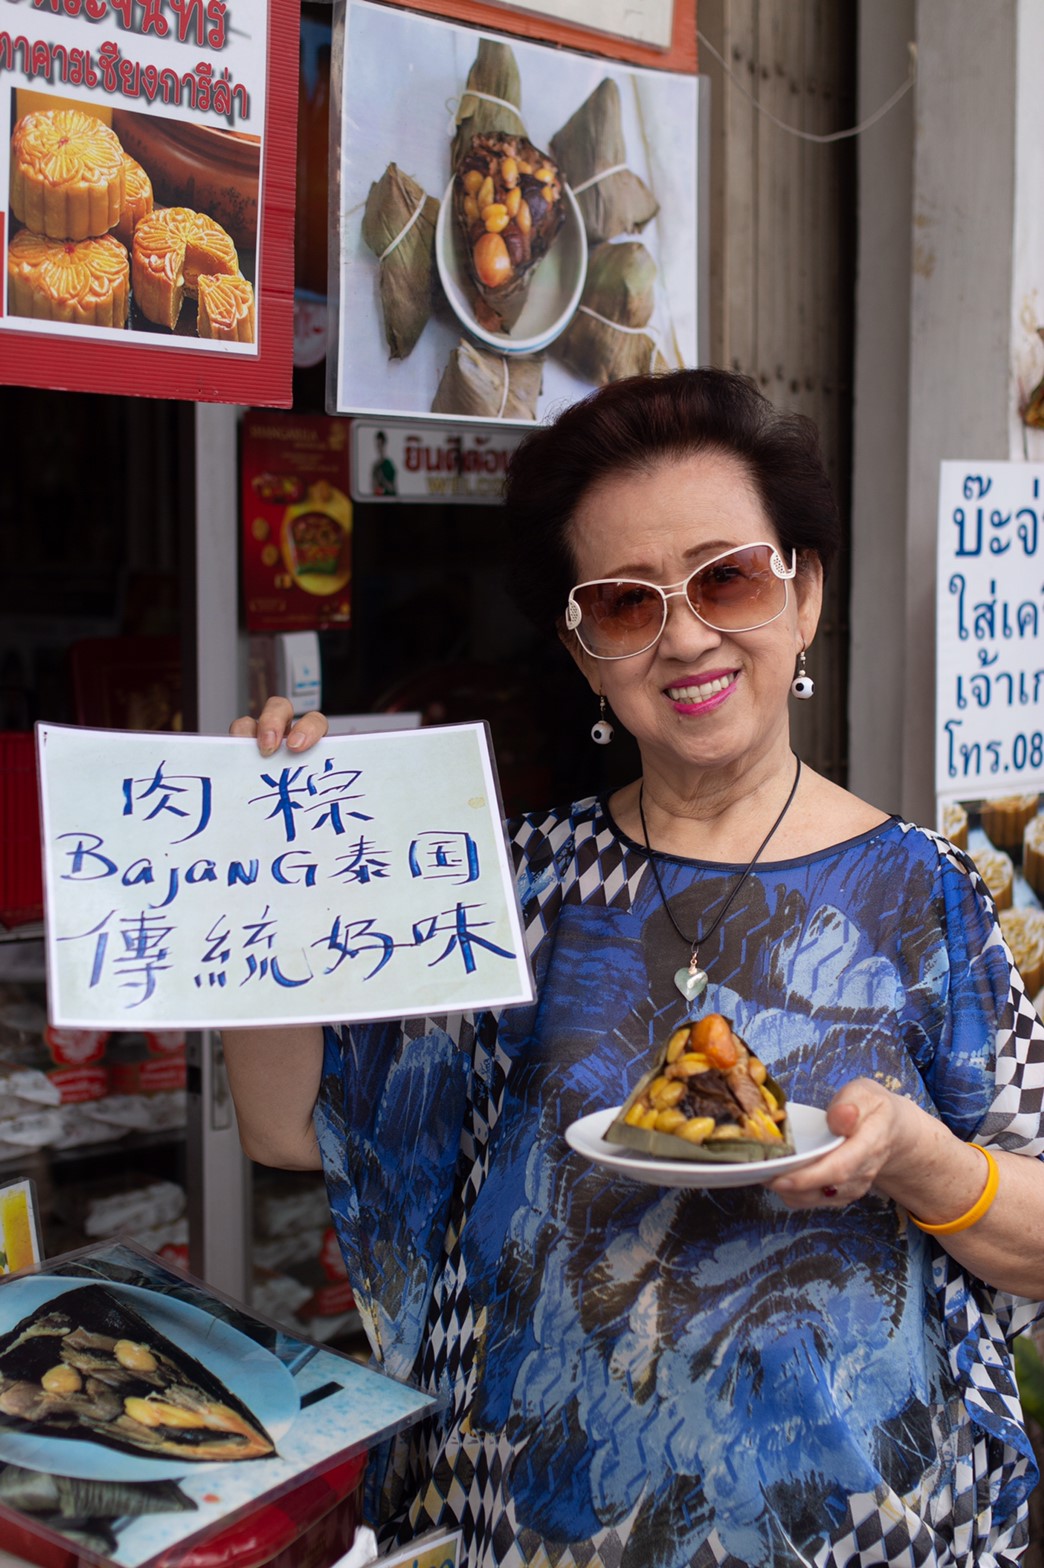 ทาคารเชียงการีล่า
ยินดีต้อน
肉粽
BajanG泰国
傳統好味
บ๊ะจ่
ใส่เค
เจ้าเก
โทร.08